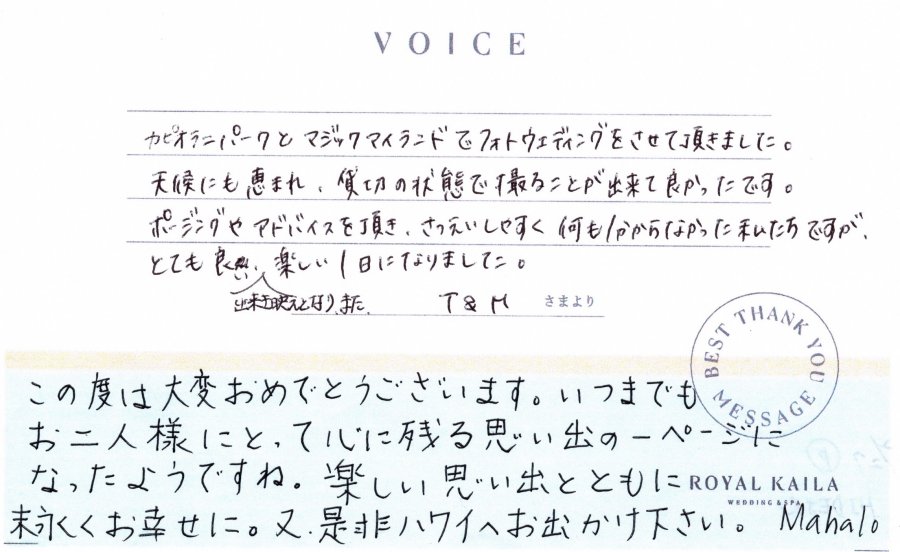 VOICE
カピオラニパークとマジックアイランドでフォトウェディングをさせて頂きました。
天候にも恵まれ、貸切の状態で撮ることが出来て良かったです。
ポージングやアドバイスを頂き、さつえいしやすく何も分からなかった私たちですが、
とても良い、楽しい1日になりました。
出来映えとなり、また
T & M さまより
BEST THANK YOU MESSAGE
この度は大変おめでとうございます。いつまでも
お二人様にとって心に残る思い出の一ページに
なったようですね。楽しい思い出とともに
ROYAL KAILA
WEDDING & SPA
末永くお幸せに。又、是非ハワイへお出かけ下さい。 Mahalo